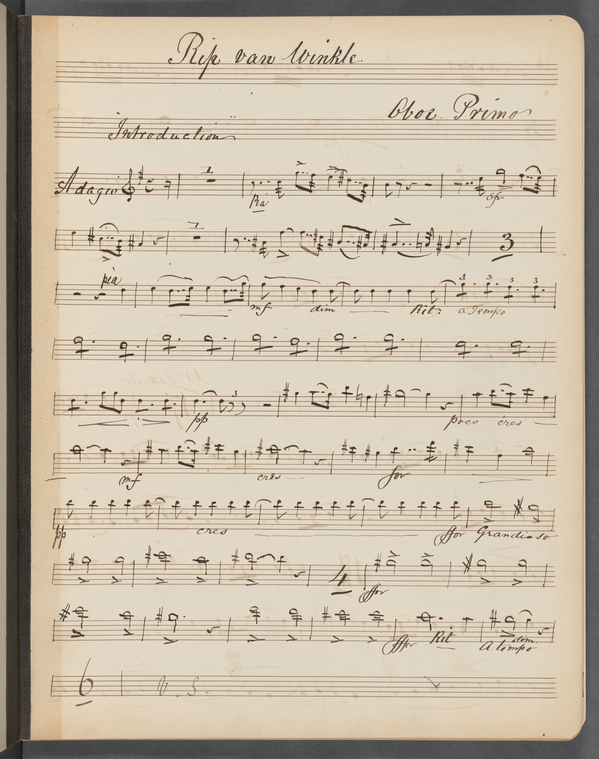 Rip van Winkle.
Oboe. Primo
"Introduction"
Adagio
1
Pia
sf
1
3
pia
mf dim Rit: a Tempo
3 3 3 3
pp 3 poco cres
mf cres for
pp cres ffor Grandioso
4 ffor
ffor Rit dim
A tempo
6 V. S.